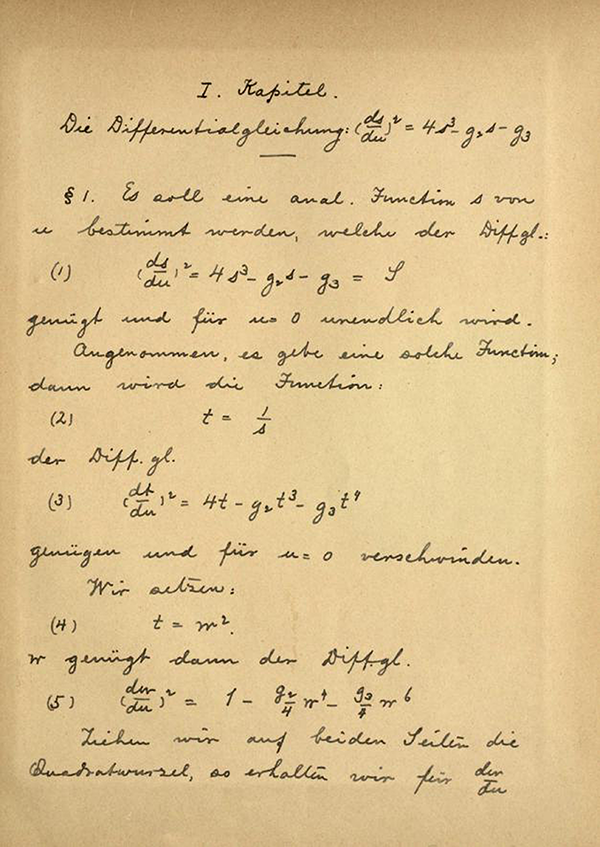 I. Kapitel.
Die Differentialgleichung: (ds/du)² = 4s³ - g₂s - g₃
§ 1. Es soll eine anal. Function s von
u bestimmt werden, welche der Diffgl.:
(1) (ds/du)² = 4s³ - g₂s - g₃ = S
genügt und für u = 0 unendlich wird.
Angenommen, es gebe eine solche Function;
dann wird die Function:
(2) t = 1/s
der Diff. gl.
(3) (dt/du)² = 4t - g₂t³ - g₃t⁴
genügen und für u = 0 verschwinden.
Wir setzen:
(4) t = w².
w genügt dann der Diff.gl.
(5) (dw/du)² = 1 - g₂/4 w⁴ - g₃/4 w⁶
Ziehen wir auf beiden Seiten die
Quadratwurzel, so erhalten wir für dw/du